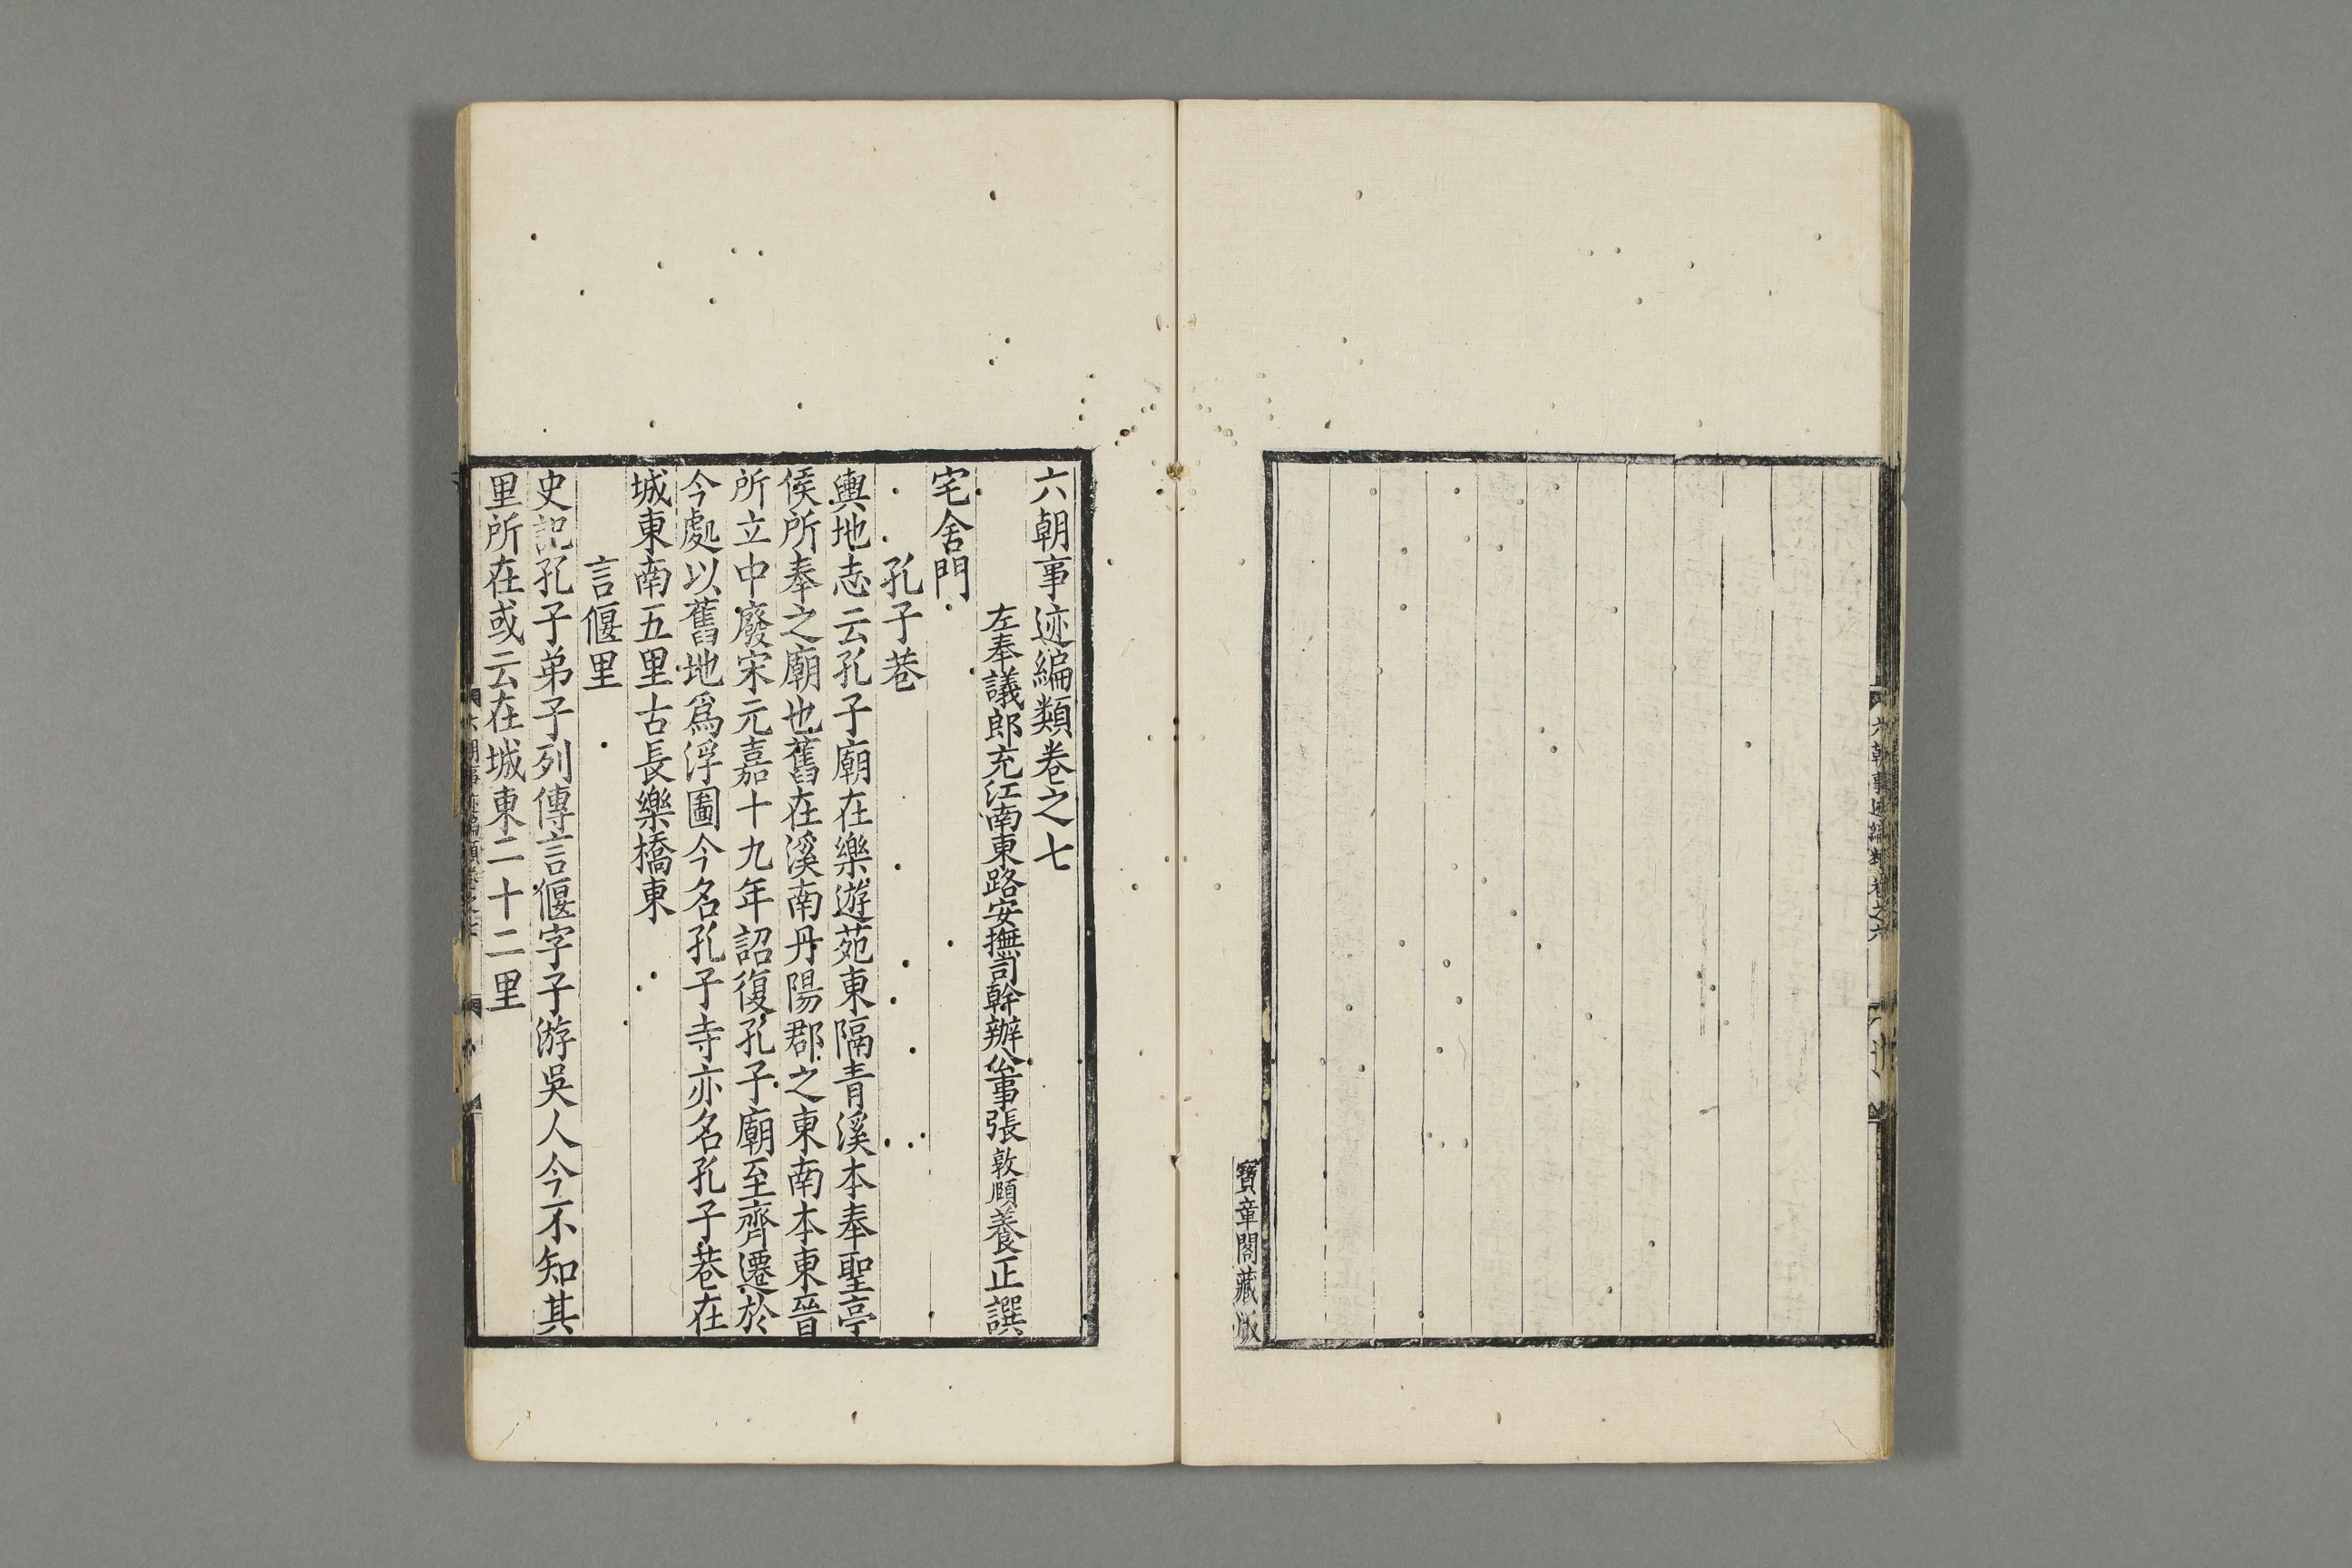 六朝事迹編類卷之六
寶章閣藏版
六朝事迹編類卷之七
左奉議郎充江南東路安撫司幹辦公事張敦頤養正譔
宅舍門
孔子巷
輿地志云孔子廟在樂遊苑東隔青溪本奉聖亭
侯所奉之廟也舊在溪南丹陽郡之東南本東晉
所立中廢宋元嘉十九年詔復孔子廟至齊遷於
今處以舊地爲浮圖今名孔子寺亦名孔子巷在
城東南五里古長樂橋東
言偃里
史記孔子弟子列傳言偃字子游吳人今不知其
里所在或云在城東二十二里